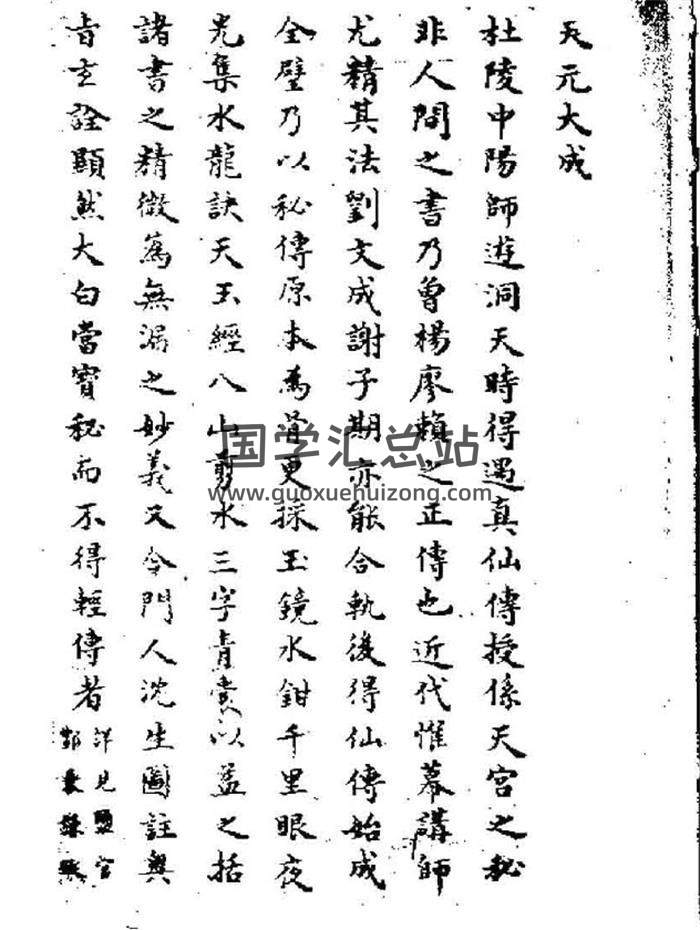 天元大成
杜陵中陽師遊洞天時得遇真仙傳授係天宮之秘
非人間之書乃曾楊廖賴之正傳也近代惟幕講師
尤精其法劉文成謝子期亦能合執後得仙傳始成
全璧乃以秘傳原本為骨更採玉鏡水鉗千里眼夜
光集水龍訣天玉經八山剪水三字青囊以益之括
諸書之精微為無漏之妙義又令門人沈生圖註奧
旨玄詮顯然大白當寶秘而不得輕傳者
詳見鹽官
国学汇总站
www.guoxuehuizong.com